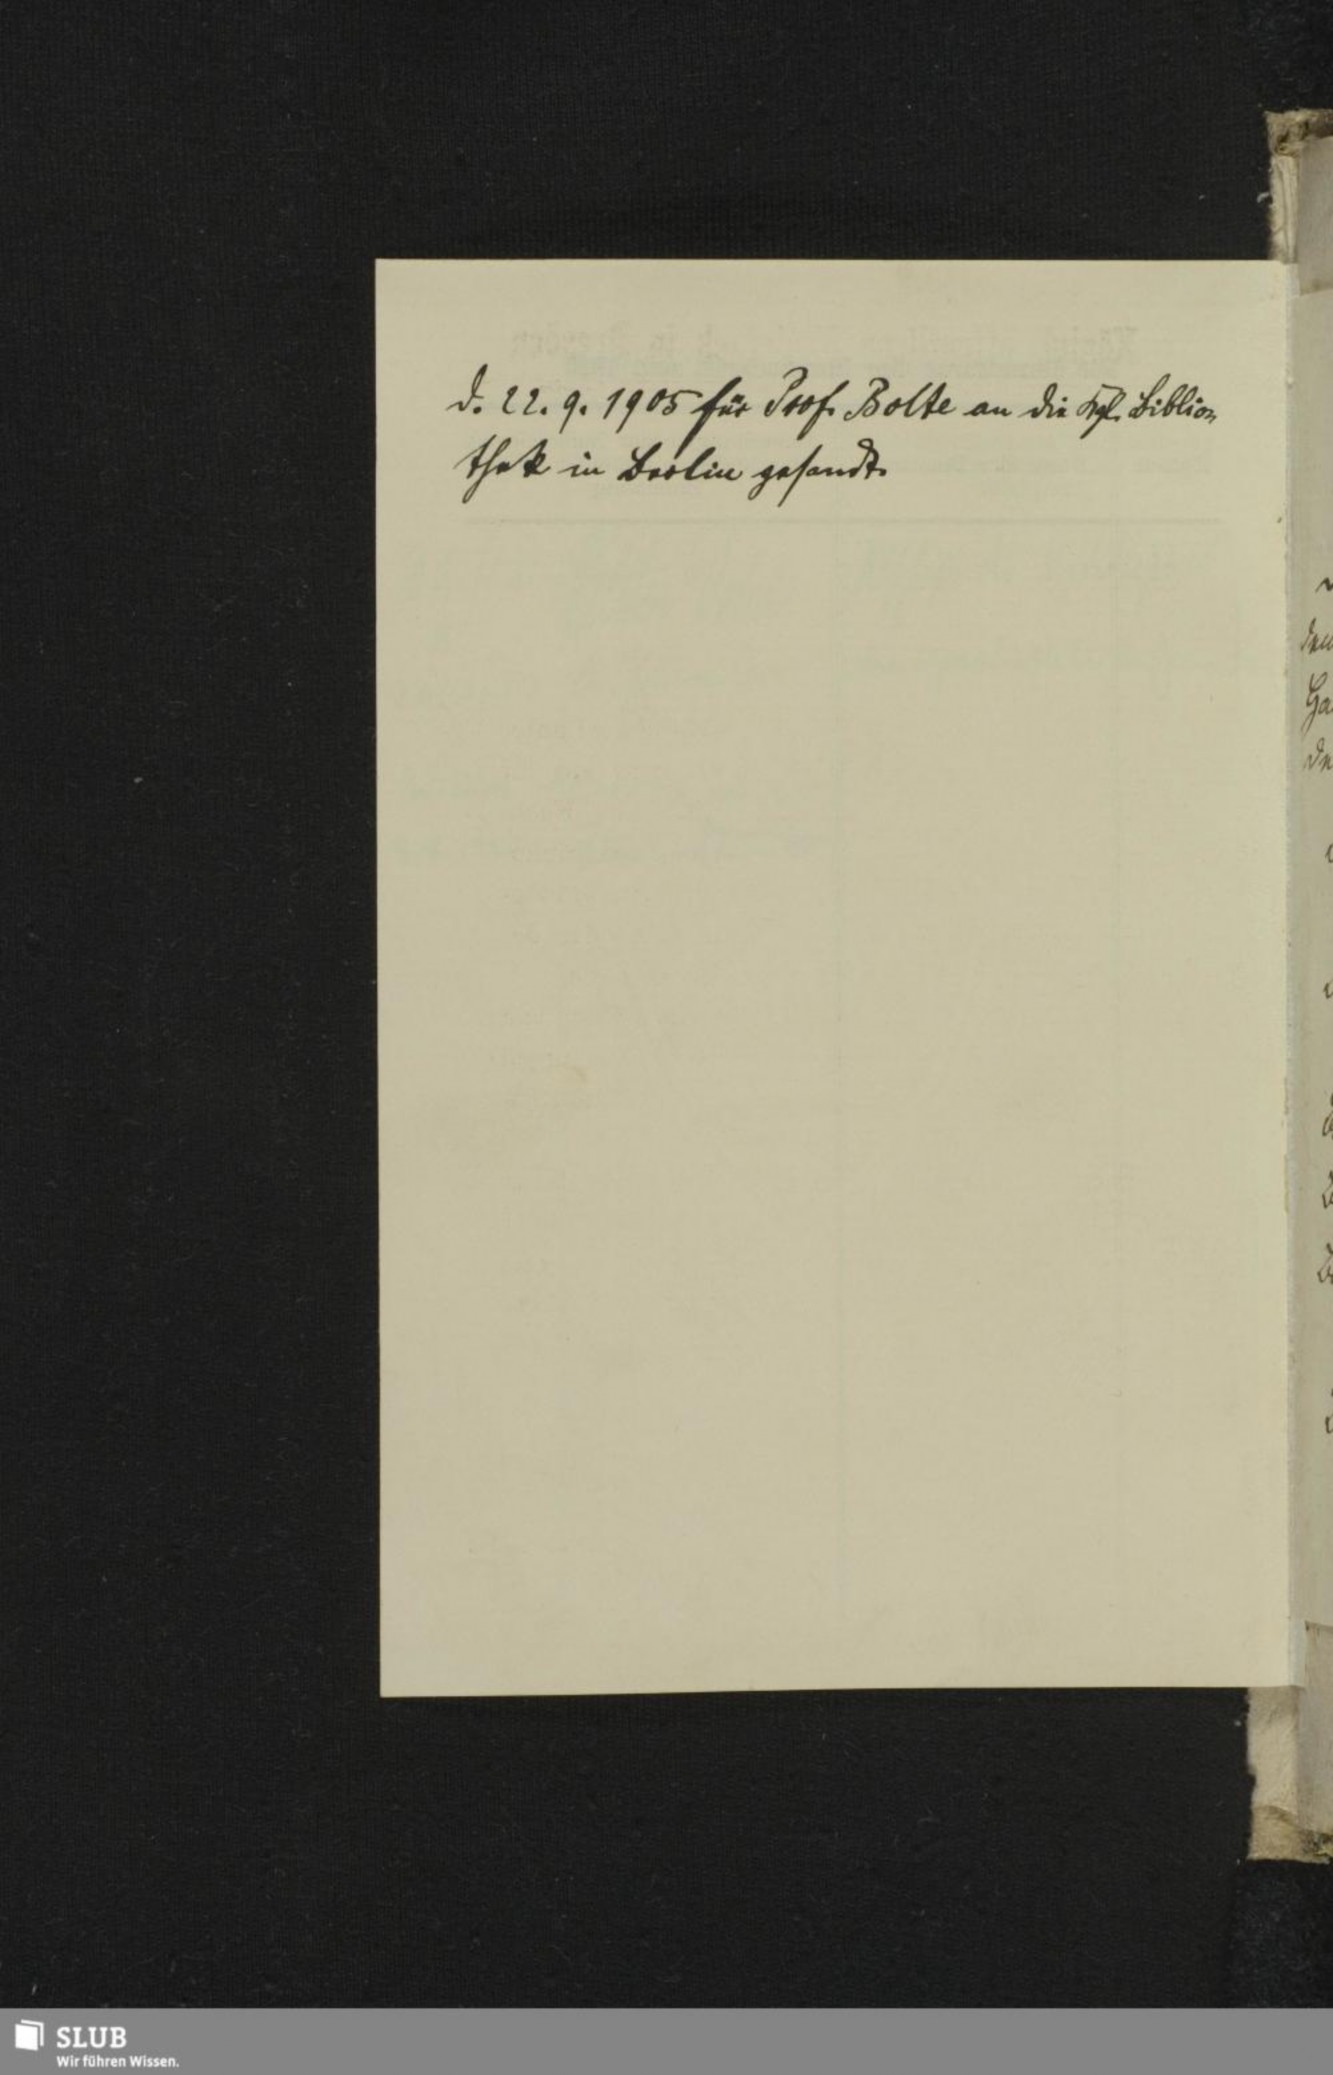 d. 22. 9. 1905 für Prof. Bolte an die Kgl. Biblio-
thek in Berlin gesandt.
SLUB
Wir führen Wissen.